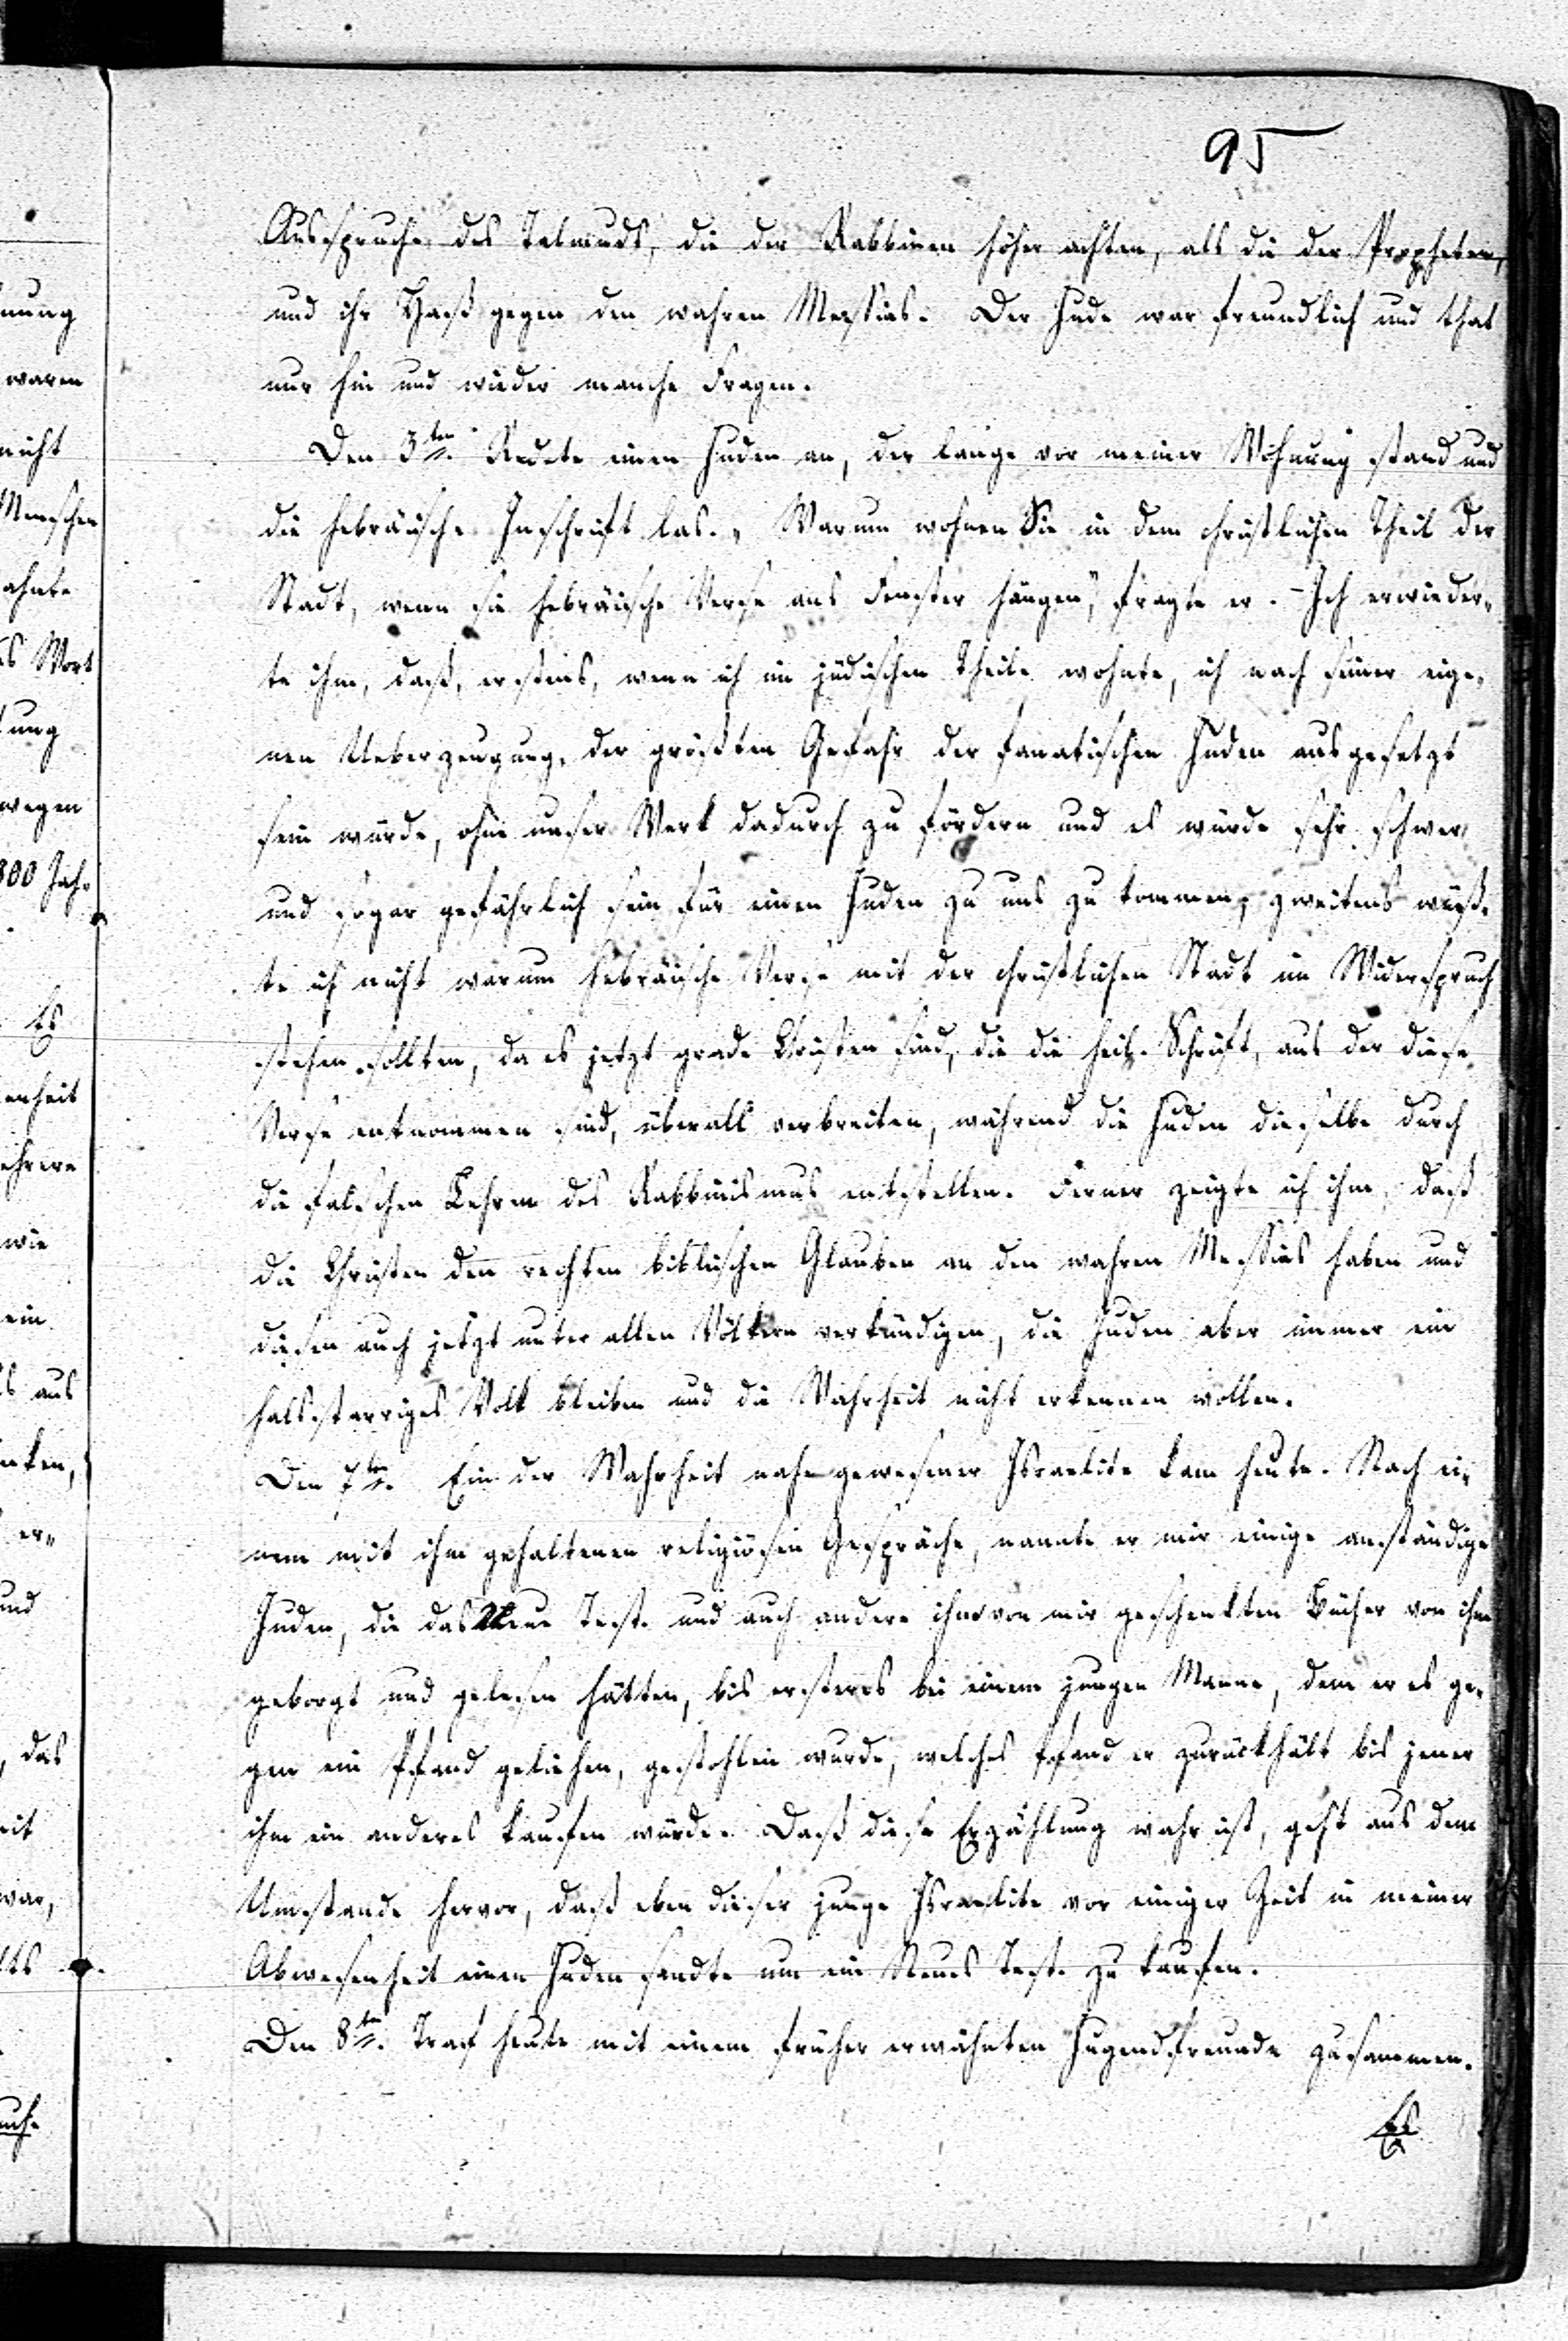 95
Aussprüche des Talmuds, die der Rabbinen höher achten, als die der Propheten,
und ihr Haß gegen den wahren Messias. Der Jude war freundlich und that
nur hin und wieder manche Fragen.
Den 3ten. Redete einen Juden an, der lange vor meiner Wohnung stand und
die hebräische Inschrift las. „Warum wohnen Sie in dem christlichen Theil der
Stadt, wenn sie hebräische Verse ans Fenster hängen", fragte er. - Ich erwieder-
te ihm, daß, erstens, wenn ich im jüdischen Theile wohnte, ich nach seiner eige-
nen Ueberzeugung, der größten Gefahr der fanatischen Juden ausgesetzt
sein würde, ohne unser Werk dadurch zu fördern und es würde sehr schwer
und sogar gefährlich sein für einen Juden zu uns zu kommen, zweitens wüß-
te ich nicht warum hebräische Verse mit der christlichen Stadt im Widerspruch
stehen sollten, da es jetzt grade Christen sind, die die heil. Schrift, aus der diese
Verse entnommen sind, überall verbreiten, während die Juden dieselbe durch
die falschen Lehren des Rabbinismus entstellen. Ferner zeigte ich ihm, daß
die Christen den rechten biblischen Glauben an den wahren Messias haben und
diesen auch jetzt unter allen Völkern verkündigen, die Juden aber immer ein
halsstarriges Volk bleiben und die Wahrheit nicht erkennen wollen.
Den 7ten. Ein der Wahrheit nahe gewesener Israelite kam heute. Nach ei-
nem mit ihm gehaltenen religiösen Gespräche, nannte er mir einige anständige
Juden, die das Neue Test. und auch andere ihm von mir geschenkten Bücher von ihm
geborgt und gelesen hätten, bis ersteres bei einem jungen Manne, dem er es ge-
gen ein Pfand geliehen, gestohlen wurde, welches Pfand er zurückhält bis jener
ihm ein anderes kaufen würde. Daß diese Erzählung wahr ist, geht aus dem
Umstande hervor, daß eben dieser junge Israelite vor einiger Zeit in meiner
Abwesenheit einen Juden sandte um ein Neues Test. zu kaufen.
Den 8ten. Traf heute mit einem früher erwähnten Jugendfreunde zusammen.
Es